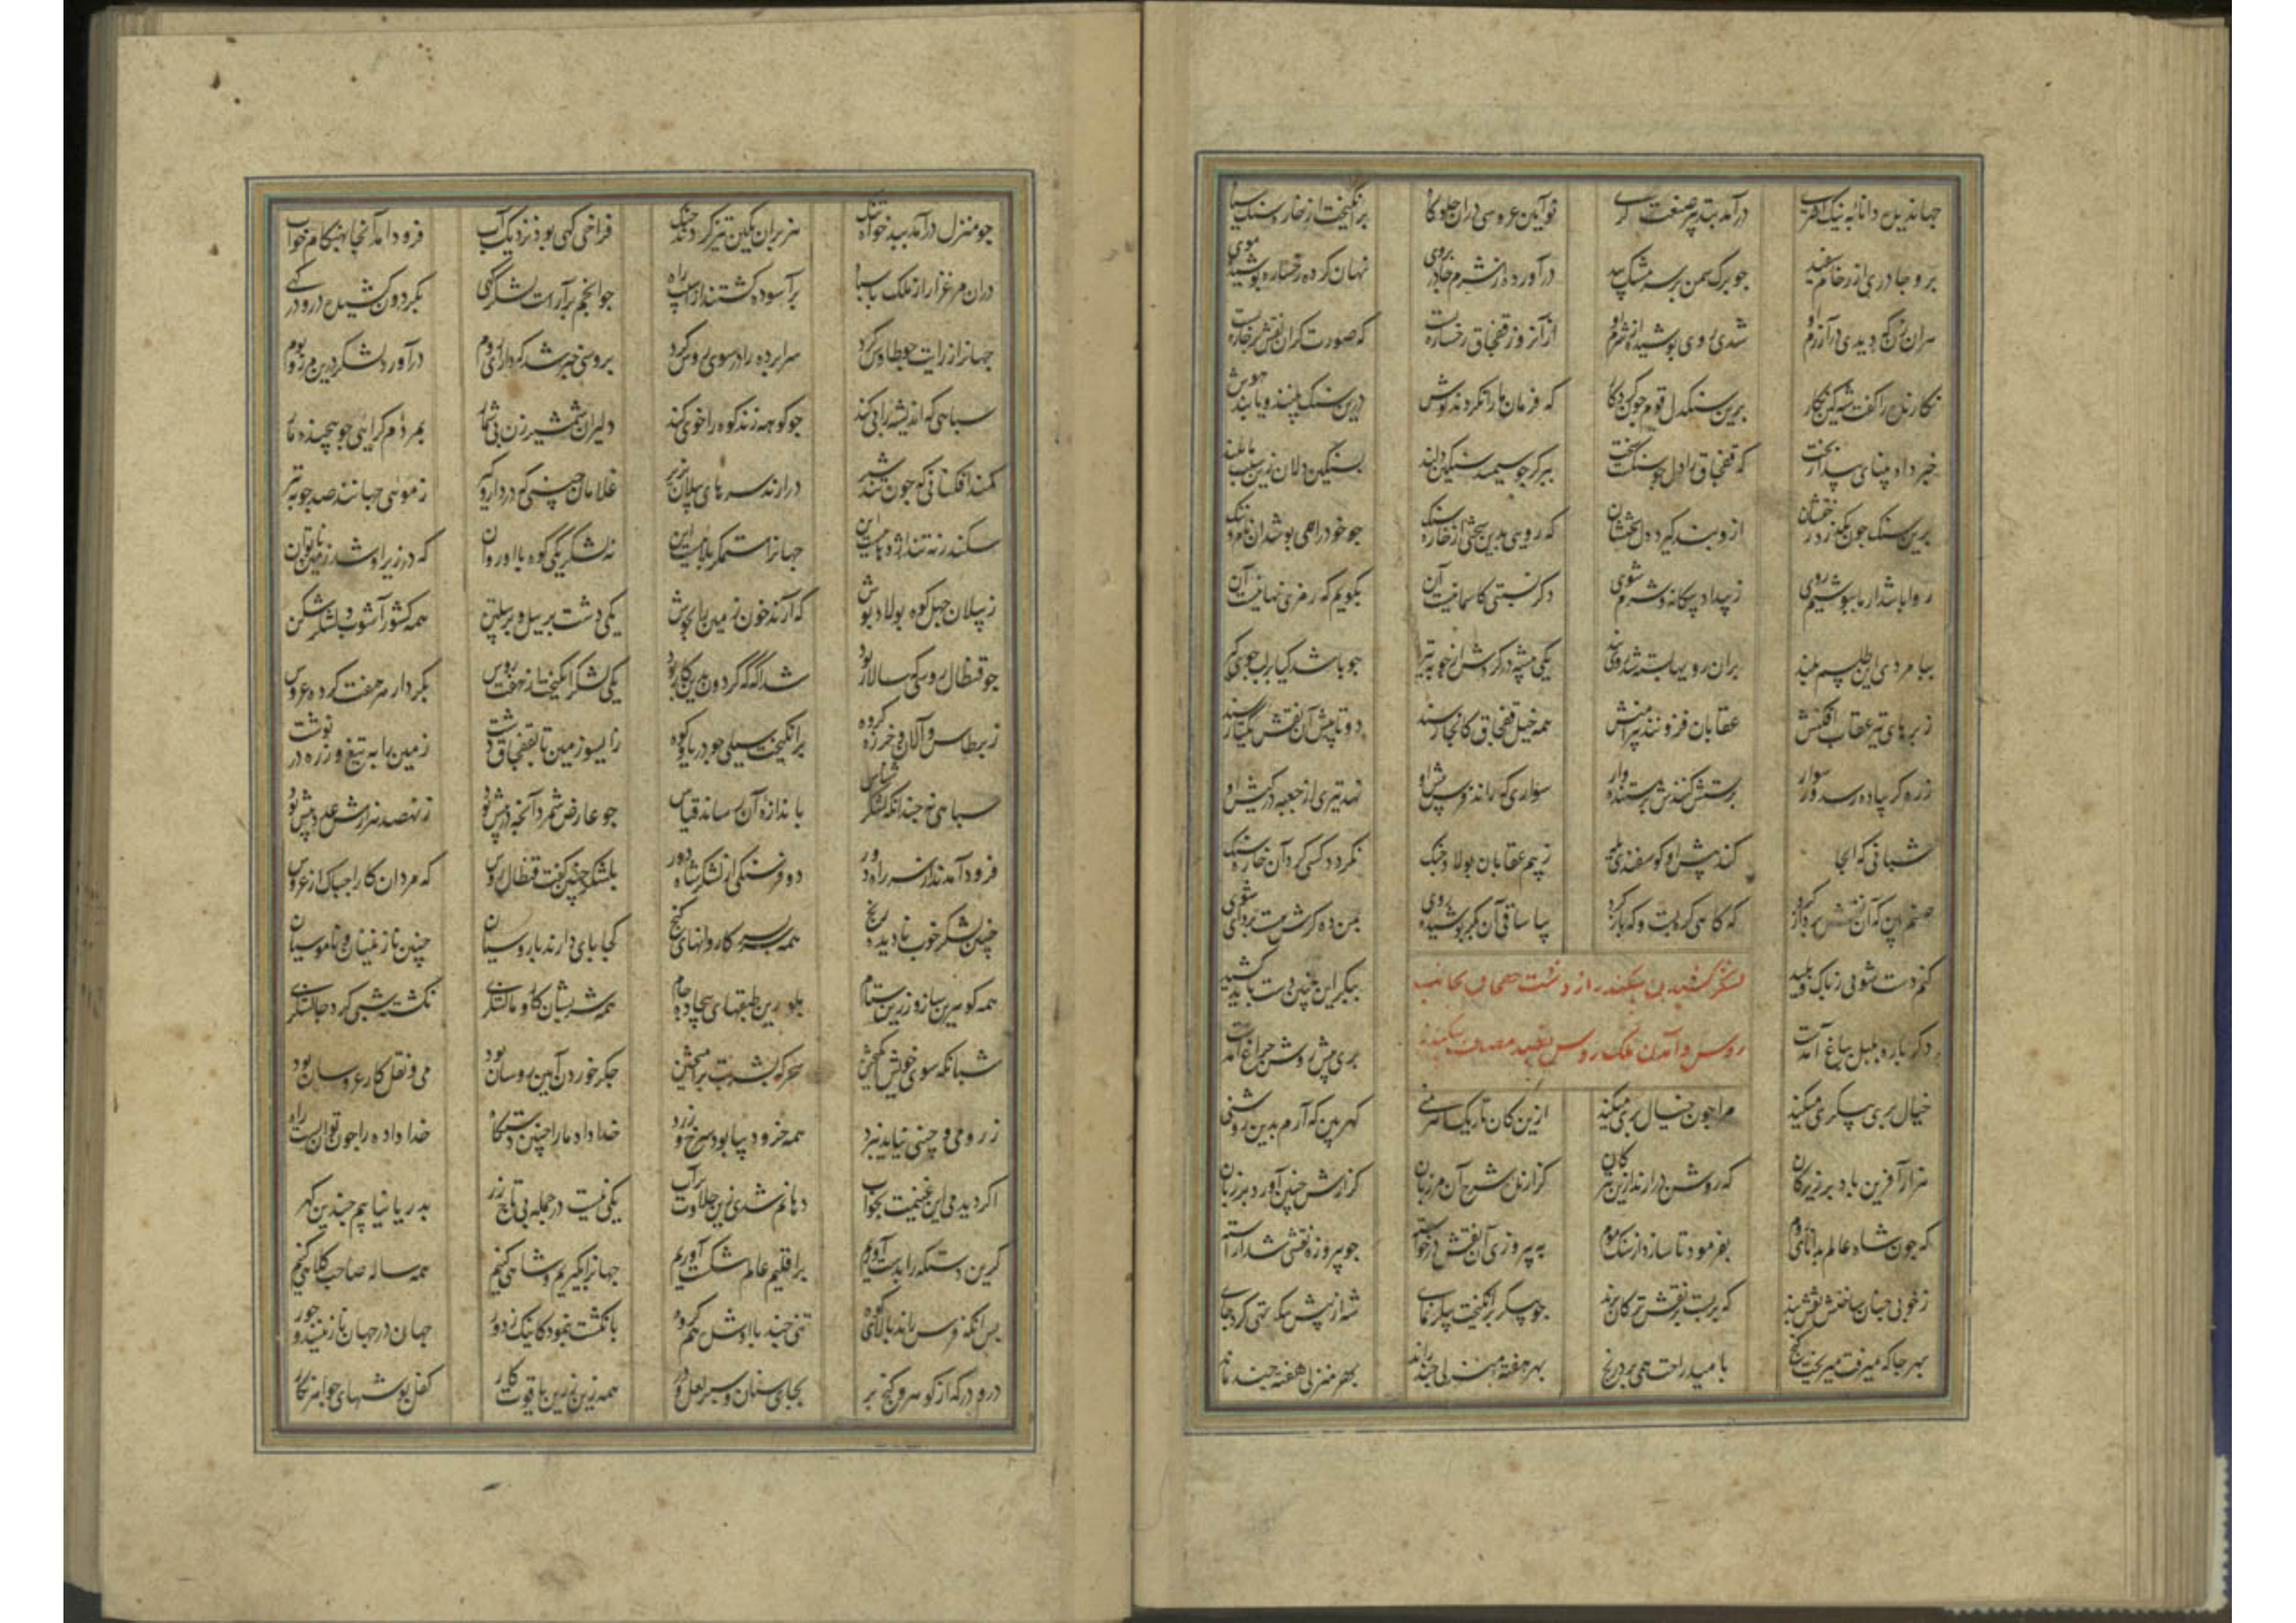 جهاندیده دانا به نیک اختری درآمد بتدبیر صنعت گری نوآیین عروسی دران جلوه گاه برانگیخت از خاره سنگ سیاه
برو چادری از رخام سفید چو برگ سمن بر سر مشک بید درآورده از شرم چادر بروی نهان کرده رخساره و پوشیده موی
هران زن که دیدی در آزرم او شدی روی پوشیده از شرم او از آن روز قفجاق رخساره بست که صورت گر آن نقش بر خاره بست
نگارنده را گفت شه کین نگار برین سنگدل قوم چون کرد کار که فرمان ما را نکردند گوش درین سنگ بینند و یابند هوش
خبر داد بینای بیدار بخت که قفجاق را دل چو سنگست سخت ببر گرچو سیمند سنگین دلند بسنگین دلان زین سبب مایلند
برین سنگ چون بگذرد رختشان ازو پند گیرد دل سختشان که رویی بدین سختی از خاره سنگ چو خود را همی پوشد از نام و ننگ
روا باشد ار ما بپوشیم روی ز بیداد بیگانه و شرم شوی دگر نسبتی کاسمانیست آن نگویم که رمزی نهانیست آن
بپا مردی این طلسم بلند بران رویها بسته شد روی بند یکی بیشه در گردش از چوبه تیر چو باشد گیا بر لب جوی
ز پرهای تیر عقاب افکنش عقابان فزونند پیرامنش همه خیل قفجاق کانجا رسند دو تا پیش آن نقش یکتا رسند
ز ره گر پیاده رسد ور سوار پرستش کنندش پرستنده وار سواری که راند فرس پیش او نهد تیری از جعبه در کیش او
شبانی که آنجا کند پیش او گوسفندی یله ز بیم عقابان پولاد چنگ نگردد کسی گرد آن خاره سنگ
صنم بین که آن نقش پرداز کرد که گاهی گره بست و گه باز کرد بیا ساقی آن بکر پوشیده روی بمن ده گرش هست پروای شوی
کنم دست شویی ز پاک و پلید ببکر این چنین دست باید کشید
لشکر کشیدن سکندر از دشت قفجاق بجانب
روس و آمدن ملک روس بقصد مصاف سکندر
دگر باره بلبل بباغ آمدست پری پیش روشن چراغ آمدست
خیال پری پیکری میکند مرا چون خیال پری میکند ازین کان تاریک اهرمنی گهر بین که آرم بدین روشنی
هزار آفرین باد بر زیرکان که روشن درارند ازین تیره کان گزارنده شرح آن مرزبان گزارش چنین آورد بر زبان
که چون شاه عالم بدانای روم بفرمود تا سازد از سنگ موم به پیروزی آن نقش درخواسته چو پیروزه نقشی شد آراسته
ز خوبی چنان ساختش نقش بند که بر نقش ترکان پرند چو پیکر برانگیخت پیکر نمای شه از پیش پیکر تهی کرد جای
بهر جا که میرفت میریخت گنج بامید راحت همی برد رنج بهر هفته منزلی چند راند بهر منزلی هفته چند ماند
چو منزل درآمد ببدخواه تنگ هزبران بکین تیز کردند چنگ فراخی گهی بود نزدیک آب فرود آمد آنجا بهنگام خواب
دران مرغزار از ملک تا سپاه برآسوده گشتند از آسیب راه چو انجم برآراست لشکر گهی بگردون کشیده درو درگهی
جهان را ز رایت چو طاوس کرد سراپرده را در سوی روس کرد بروسی خبر شد که دارای روم درآورد لشکر درین مرز و بوم
سپاهی که اندیشه را پی کند چو کوهه زند کوه را خوی کند دلیران شمشیر زن بی شمار بمردم گرایی چو پیچنده مار
کمند افکنانی که چون تند شیر درارند سرهای پیلان بزیر غلامان چینی که در دار و گیر ز مویی جهانند صد چوبه تیر
سکندر نه تند اژدهاییست این جهان را ستمگر بلاییست این نه لشکر یکی کوه با او روان که در زیر او شد زمین ناتوان
ز پیلان چهل کوه پولاد پوش که آرند خون زمین را بجوش یکی دشت پر پیل و پر پیلتن همه کشور آشوب و لشکر شکن
چو قنطال روسی که سالار بود شد آگه که گردون بدین کار بود یکی لشکر انگیخت از هفت روس بکردار هر هفت کرده عروس
ز برطاس و آلان و خزران گروه برانگیخت سیلی چو دریا و کوه ز ایسو زمین تا بقفجاق دشت زمین را به تیغ و زره در نوشت
سپاهی نه چندانکه لشکر شناس باندازه آن رساند قیاس چو عارض شمرد آنچه در پیش بود ز نهصد هزارش عدد بیش بود
فرود آمدند از سر راه دور دو فرسنگی از لشکر شاه دور بلشکر چنین گفت قنطال روس که مردان کار را چه باک از عروس
چنین لشکر خوب نادیده رنج همه سر بسر کاروانهای گنج کجا پای دارند با روسیان چنین نازنینان و ناموسیان
همه گوهرین ساز و زرین ستام بلورین طبقهای بیجاده جام همه شربشان کار و مالشگری نگشته شبی گرد چالشگری
شبانگه سوی خویش سحرگه بشربت برانگیختن جگر خوردن آیین روسان بود می و نقل کار عروسان بود
ز رومی و چینی نیاید نبرد همه خز و دیبا بود سرخ و زرد خدا داده ما را چنین دستگاه خدا داده را چون توان بست راه
اگر دیدمی این غنیمت بخواب دهانم شدی زین حلاوت پرآب یکی نیست در جمله بی تاج زر بدریا نیابیم چندین گهر
گرین دستگه را بدست آوریم بر اقلیم عالم شکست آوریم جهان را بگیریم و شاهی کنیم همه ساله صاحب کلاهی کنیم
پس آنگه فرس راند بالای کوه تنی چند با او شده هم گروه بانگشت بنمود کاینک ز دور جهان در جهان نازنینند و حور
در و درگه از گوهر و گنج پر بجای سنان و سپر لعل و در همه زین زرین یاقوت کار کفل پوشهای جواهر نگار